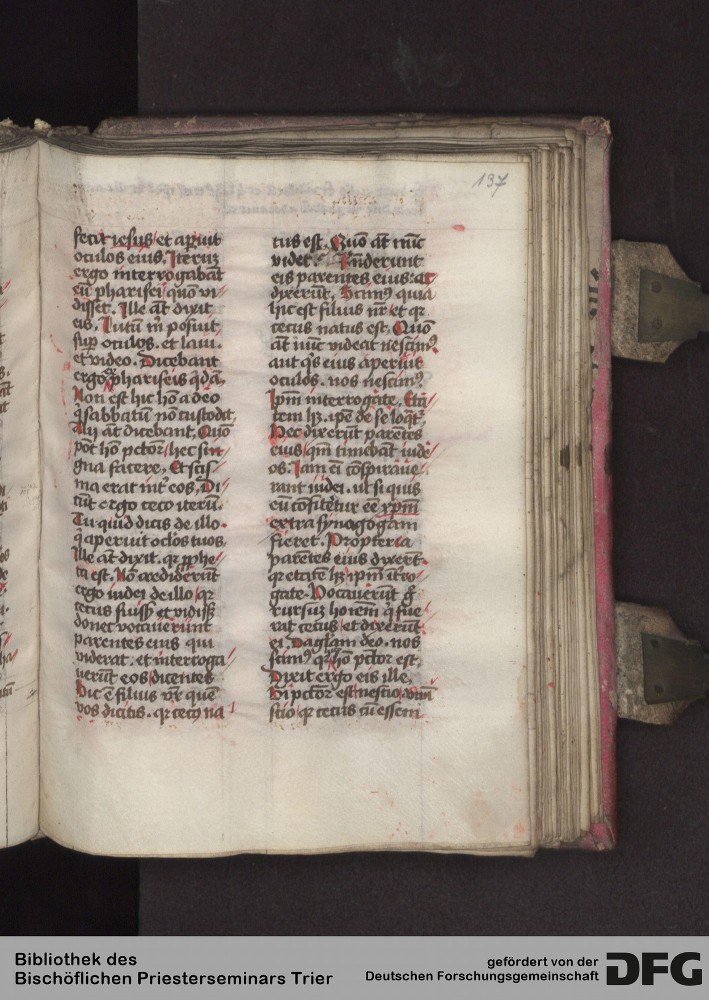 137
fecit iesus et apuit
oculos eius. Iterū
ergo interrogabāt
eū pharisei quō vi
disset. Ille āt dixit
eis. Lutū m posuit
sup oculos. et laui.
et video. Dicebant
ergo phariseis qdā.
Non est hic hō a deo
q sabbatū nō custodit.
Alij āt dicebant. Quō
pōt hō pctor hec sig
gna facere. Et scis
ma erat int eos. Di
cūt ergo ceco iterū.
Tu quid dicis de illo.
q aperuit oclos tuos.
Ille āt dixit. qr pphe
ta est. Nō crediderūt
ergo iudei de illo qr
cecus fuiss et vidiss
donec vocauerunt
parentes eius qui
viderat. et interroga
uerūt eos dicentes
Hic ē filius vr quē
vos dicitis. qr cecus na
tus est. Quō āt nūc
videt. Rnderunt
eis parentes eius. et
dixerūt. Scimus quia
hic est filius nr et qr
cecus natus est. Quō
āt nūc videat nescimus
aut qs eius aperuit
oculos. nos nescimus
Ipm interrogate. Eta
tem hz. ipe de se loqt.
Hec dixerūt parētes
eius qm timebāt iude
os. Iam ei cōspiraue
rant iudei. ut si quis
eū cōfiteretur eē xpm
extra synagogam
fieret. Propterea
parētes eius dixerūt.
qr etatē hz ipm īterro
gate. Vocauerūt g
rursuz hoīem q fue
rat cecus et dixerūt
ei. Da gliam deo. nos
scimus qr hō pctor est.
Dixit ergo eis ille.
Si pctor est nescio. vnū
scio qr cecus cū essem
Bibliothek des
Bischöflichen Priesterseminars Trier
gefördert von der
Deutschen Forschungsgemeinschaft
DFG